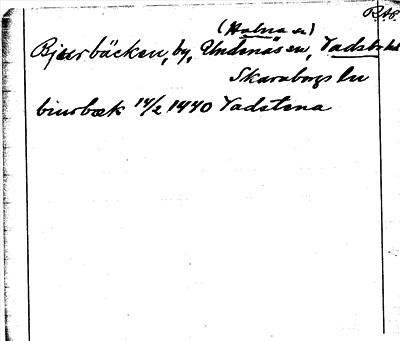 RAP.
(Halna sn)
Bjurbäcken, by, Undenäs sn, Vadsbo hd
Skaraborgs ln
biurbæk 14/2 1440 Vadstena